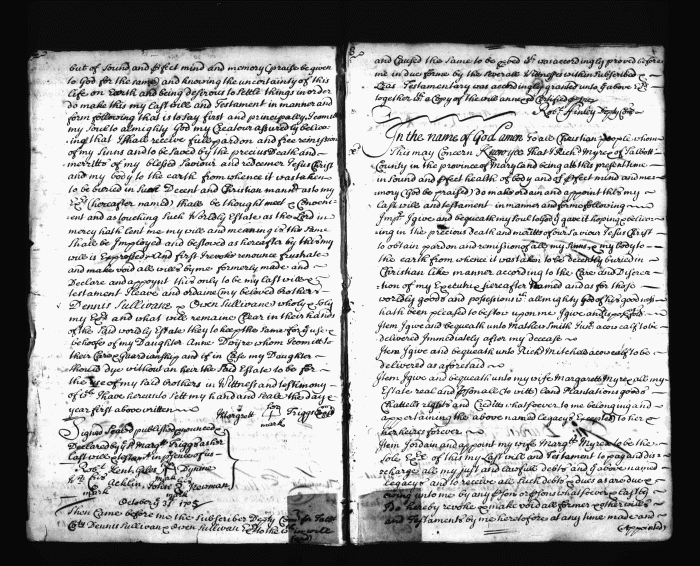 but of Sound and pfect mind and memory praise be given
to God for the same and knowing the uncertainty of this
life on Earth and being desirous to settle things in order
do make this my last will and Testament in manner and
form following that is to say first and principally I comit
my Soul to almighty God my Creatour assuredly believ=
ing that I shall receive full pardon and free remission
of my Sinns and to be Saved by the precious Death and
meritts of my blessed Saviour and redeemer Jesus Christ
and my body to the earth from whence it was taken
to be buried in Such Decent and Christian mann as to my
Exs (hereafter named) shall be thought meet & Conveni
ent and as touching Such Worldly Estate as the Lord in
mercy hath Lent me my will and meaning is the Same
Shall be Imployed and bestowed as hereafter by this my
will is Expressed And first I revoke renounce frustrate
and make void all wills by me formerly made and
Declare and appoynt this only to be my last will &
testament I leave and ordaine my beloved brothers
Dennis Sullivane & Owen Sullivane wholy & soly
my Exs and what will remaine Clear in their hands
of the said wordly Estate they to keep the same for ye use
behoofe of my Daughter Anne Dwyre whom I comitt to
their Care & Guardianship and if in Case my Daughter
should dye without an heir the said Estate to be for
the use of my said brothers in Wittness and testimony
of wch I have hereunto Sett my hand and Seale the day &
year first above written
Margrett for Triggs Seal
mark
Signed Sealed published pronounced
Declared by Margtt Triggs as her
last will & testamt in presence of us
Robt Kent Giles
John Newman
mark
October ye 31 1705
Then Came before me the Subscriber Depty Comy for Talbt
Coty Dennis Sullivan & Owen Sullivan Exs to the will
and Caused the same to be pved it was accordingly proved before
me in due forme by the severall Wittnesses within Subscribed
Letrs Testamentary was accordingly granted unto ye above Exs
together wth a Copy of the will annexed Certified
Robt Finley Depty Comy
In the name of God Amen To all Christian people whom
This may Concern Know yee That I Richd Myre of Talbott
County in the province of Maryland being att this present time
in Sound and pfect health of body and of pfect mind and me=
mory (God be praised) do make ordain and appoint this my
last will and testament in manner and forme following
Impr I give and bequeath my soul to God yt gave it hoping & believ=
ing in the precious death and meritts of our Saviour Jesus Christ
to obtain pardon and remission of all my sinns & my body to
the earth from whence it was taken to be decently buried in
Christian like manner according to the Care and Discre
tion of my Executrix hereafter Named and as for those
worldly goods and possessions wch allmighty God of his goodness
hath been pleased to bestow upon me I give and
Item I give and bequeath unto Mathew Smith Junr a cow calf to be
delivered Immediately after my decease
Item I give and bequeath unto Richd Mitchell a cow calf to be
delivered as aforesaid
Item I give and bequeath unto my wife Margarett Myre all my
Estate real and psonale (to witt) and Plantations goods
Chattells rights and Creditts whatsoever to me belonging and
appertaining the above named Legacys Excepted to her
her heirs forever
Item I ordain and appoint my wife Margtt Myre to be the
Sole Exx of this my last will and Testament to pay and dis
charge all my just and lawfull debts and ye above named
Legacys and to receive all such debts & dues as are due &
owing unto me by any pson or psons whatsoever & lastly
I do hereby revoke & make void all former & other wills
and Testaments by me heretofore at any time made and
Appointed